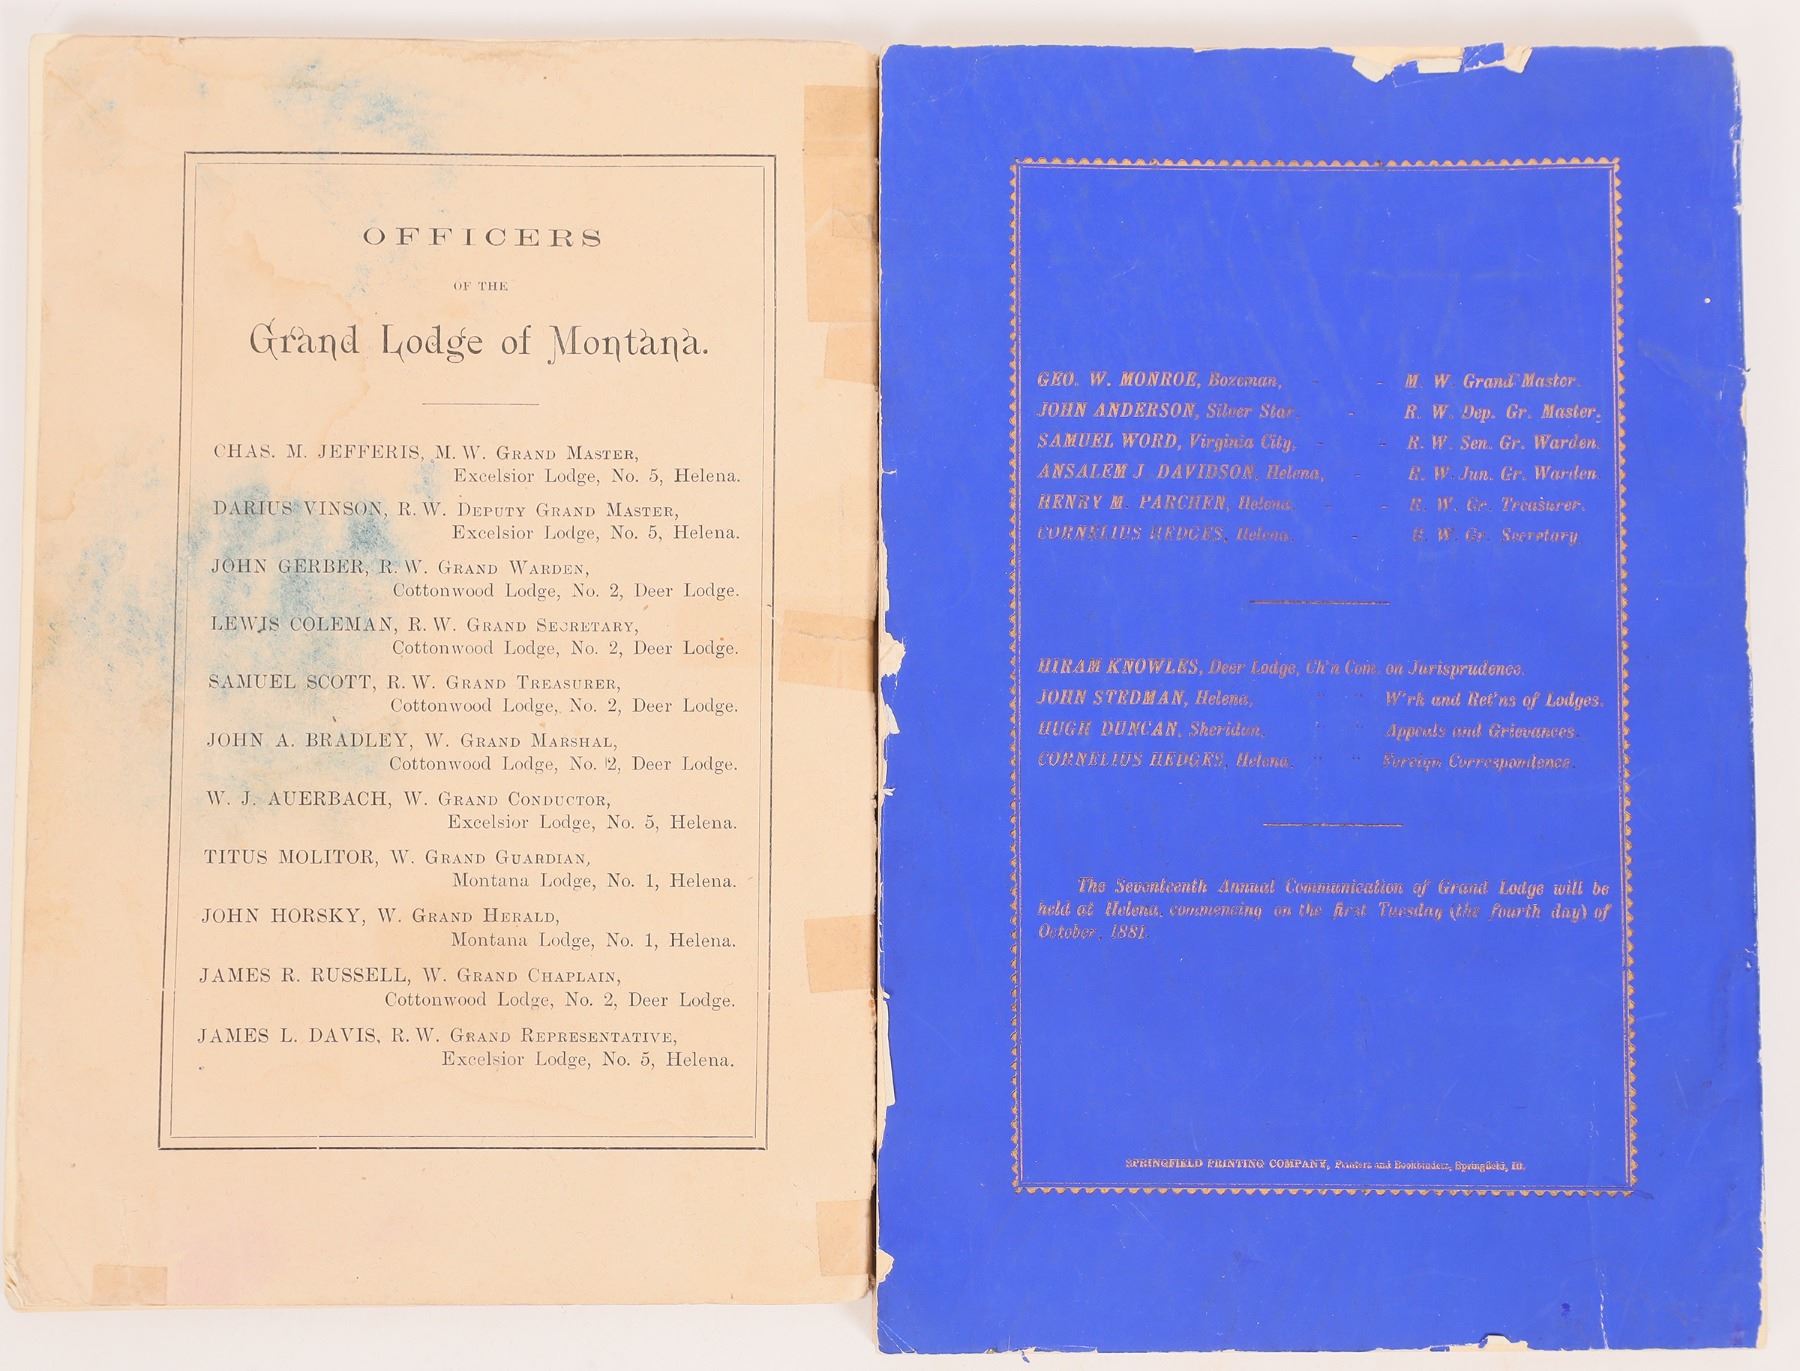 OFFICERS
OF THE
Grand Lodge of Montana.
CHAS. M. JEFFERIS, M. W. GRAND MASTER,
Excelsior Lodge, No. 5, Helena.
DARIUS VINSON, R. W. DEPUTY GRAND MASTER,
Excelsior Lodge, No. 5, Helena.
JOHN GERBER, R. W. GRAND WARDEN,
Cottonwood Lodge, No. 2, Deer Lodge.
LEWIS COLEMAN, R. W. GRAND SECRETARY,
Cottonwood Lodge, No. 2, Deer Lodge.
SAMUEL SCOTT, R. W. GRAND TREASURER,
Cottonwood Lodge, No. 2, Deer Lodge.
JOHN A. BRADLEY, W. GRAND MARSHAL,
Cottonwood Lodge, No. 2, Deer Lodge.
W. J. AUERBACH, W. GRAND CONDUCTOR,
Excelsior Lodge, No. 5, Helena.
TITUS MOLITOR, W. GRAND GUARDIAN,
Montana Lodge, No. 1, Helena.
JOHN HORSKY, W. GRAND HERALD,
Montana Lodge, No. 1, Helena.
JAMES R. RUSSELL, W. GRAND CHAPLAIN,
Cottonwood Lodge, No. 2, Deer Lodge.
JAMES L. DAVIS, R. W. GRAND REPRESENTATIVE,
Excelsior Lodge, No. 5, Helena.
GEO. W. MONROE, Bozeman, - - M. W. Grand Master.
JOHN ANDERSON, Silver Star, - R. W. Dep. Gr. Master.
SAMUEL WORD, Virginia City, - - R. W. Sen. Gr. Warden.
ANSALEM J. DAVIDSON, Helena, - R. W. Jun. Gr. Warden.
HENRY M. PARCHEN, Helena, - - R. W. Gr. Treasurer.
CORNELIUS HEDGES, Helena, - R. W. Gr. Secretary.
HIRAM KNOWLES, Deer Lodge, Ch'n Com. on Jurisprudence.
JOHN STEDMAN, Helena, " " W'rk and Ret'ns of Lodges.
HUGH DUNCAN, Sheridan, " " Appeals and Grievances.
CORNELIUS HEDGES, Helena, " " Foreign Correspondence.
The Seventeenth Annual Communication of Grand Lodge will be
held at Helena, commencing on the first Tuesday (the fourth day) of
October, 1881.
SPRINGFIELD PRINTING COMPANY, Printers and Bookbinders, Springfield, Ill.